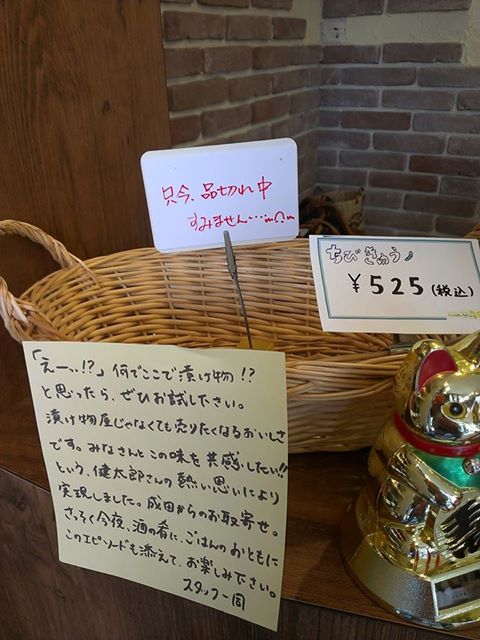 只今、品切れ中
すみません…m∩m
ちびきゅう
¥525(税込)
「えーっ!?」何でここで漬け物!?
と思ったら、ぜひお試し下さい。
漬け物屋じゃなくても売りたくなるおいしさ
です。みなさんとこの味を共感したい!!
という、健太郎さんの熱い思いにより
実現しました。成田からのお取寄せ。
さっそく今夜、酒の肴に、ごはんのおともに
このエピソードも添えて、お楽しみ下さい。
スタッフ一同